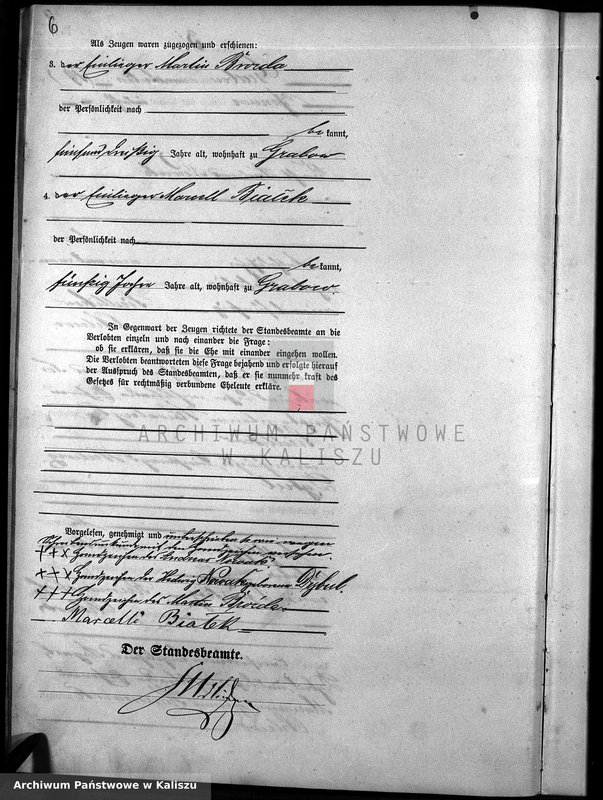 6
Als Zeugen waren zugezogen und erschienen:
3. der Einlieger Martin Brozda
der Persönlichkeit nach
be kannt,
fünfunddreißig Jahre alt, wohnhaft zu Grabow
4. der Einlieger Marcell Białek
der Persönlichkeit nach
be kannt,
fünfzig Jahre Jahre alt, wohnhaft zu Grabow.
In Gegenwart der Zeugen richtete der Standesbeamte an die
Verlobten einzeln und nach einander die Frage:
ob sie erklären, daß sie die Ehe mit einander eingehen wollen.
Die Verlobten beantworteten diese Frage bejahend und erfolgte hierauf
der Ausspruch des Standesbeamten, daß er sie nunmehr kraft des
Gesetzes für rechtmäßig verbundene Eheleute erkläre.
ARCHIWUM PAŃSTWOWE
W KALISZU
Vorgelesen, genehmigt und unterschrieben wegen
Schreibensunkunde mit den Handzeichen versehen.
+++ Handzeichen des Andreas Nowak
+++ Handzeichen der Hedwig Nowak geborene Dybul.
+++ Handzeichen des Martin Brozda.
Marcelli Białek
Der Standesbeamte.
Archiwum Państwowe w Kaliszu